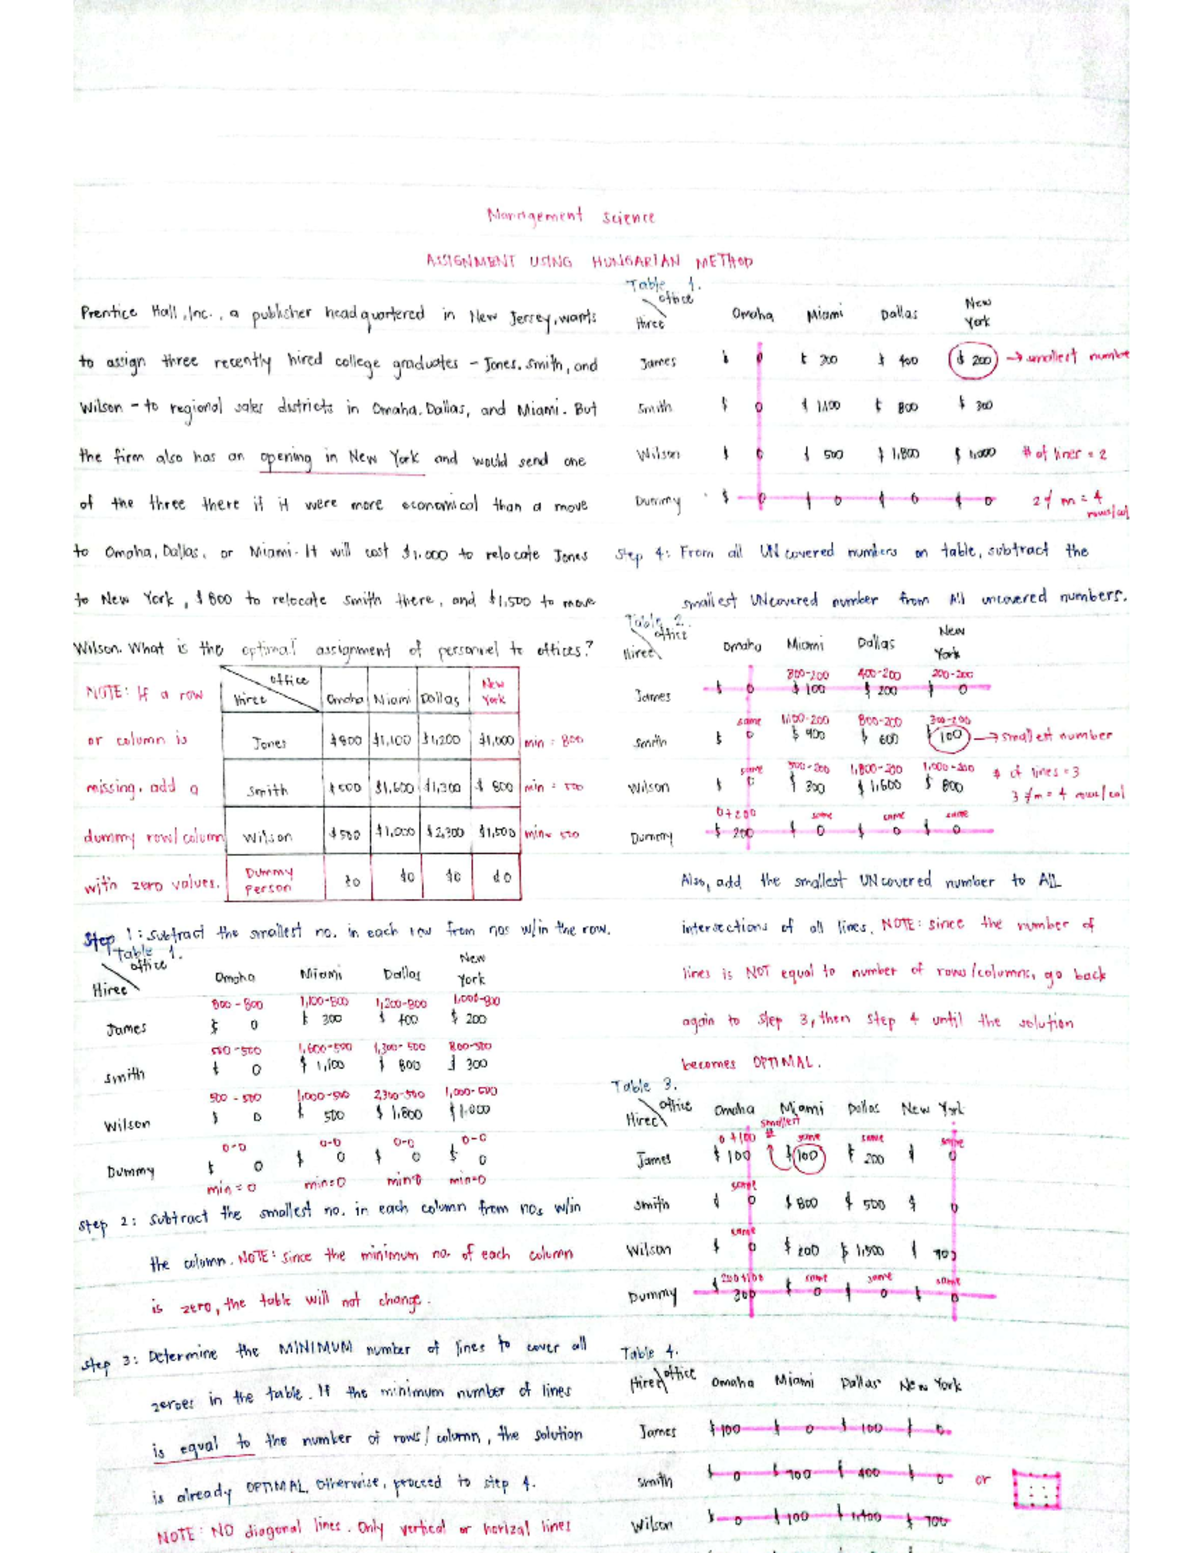 Management Science
ASSIGNMENT USING HUNGARIAN METHOD
Prentice Hall, Inc., a publisher headquartered in New Jersey, wants
to assign three recently hired college graduates - Jones, Smith, and
Wilson - to regional sales districts in Omaha, Dallas, and Miami. But
the firm also has an opening in New York and would send one
of the three there if it were more economical than a move
to Omaha, Dallas, or Miami. It will cost $1,000 to relocate Jones
to New York, $800 to relocate Smith there, and $1,500 to move
Wilson. What is the optimal assignment of personnel to offices?
NOTE: If a row
or column is
missing, add a
dummy row/column
with zero values.
Office
Hiree Omaha Miami Dallas New York
Jones $800 $1,100 $1,200 $1,000 min = 800
Smith $500 $1,600 $1,300 $800 min = 500
Wilson $500 $1,000 $2,300 $1,500 min = 500
Dummy Person $0 $0 $0 $0
Step 1: Subtract the smallest no. in each row from nos w/in the row.
Table 1.
Office
Hiree Omaha Miami Dallas New York
800-800 1,100-800 1,200-800 1,000-800
James $ 0 $ 300 $ 400 $ 200
500-500 1,600-500 1,300-500 800-500
Smith $ 0 $ 1,100 $ 800 $ 300
500-500 1,000-500 2,300-500
Wilson $ 0 $ 500 $ 1,800 $ 1,000
0-0 0-0 0-0 0-0
Dummy $ 0 $ 0 $ 0 $ 0
min = 0 min=0 min=0 min=0
Step 2: Subtract the smallest no. in each column from nos w/in
the column. NOTE: Since the minimum no. of each column
is zero, the table will not change.
Step 3: Determine the MINIMUM number of lines to cover all
zeroes in the table. If the minimum number of lines
is equal to the number of rows/column, the solution
is already OPTIMAL, Otherwise, proceed to step 4.
NOTE: NO diagonal lines. Only vertical or horizal lines
Table 1.
Office
Hiree Omaha Miami Dallas New York
James $ 0 $ 300 $ 400 $ 200 → smallest numbe
Smith $ 0 $ 1,100 $ 800 $ 300
Wilson $ 0 $ 500 $ 1,800 $ 1,000 # of lines = 2
Dummy $ 0 $ 0 $ 0 $ 0 2 ≠ m = 4
rows/col
Step 4: From all UNcovered numbers on table, subtract the
smallest UNcovered number from All uncovered numbers.
Table 2.
Office
Hiree Omaha Miami Dallas New York
300-200 400-200 200-200
James $ 0 $ 100 $ 200 $ 0
same 1,100-200 800-200 300-200
Smith $ 0 $ 900 $ 600 $ 100 → smallest number
same 500-200 1,800-200 1,000-200 # of lines = 3
Wilson $ 0 $ 300 $ 1,600 $ 800 3 ≠ m = 4 rows/col
0+200 same same same
Dummy $ 200 $ 0 $ 0 $ 0
Also, add the smallest UNcovered number to ALL
intersections of all lines. NOTE: since the number of
lines is NOT equal to number of rows/columns, go back
again to step 3, then step 4 until the solution
becomes OPTIMAL.
Table 3.
Office
Hiree Omaha Miami Dallas New York
smallest #
0+100 same same same
James $ 100 $ 100 $ 200 $ 0
same
Smith $ 0 $ 800 $ 500 $ 0
same
Wilson $ 0 $ 200 $ 1,500 $ 700
200+100 same same same
Dummy $ 300 $ 0 $ 0 $ 0
Table 4.
Hiree Office Omaha Miami Dallas New York
James $ 100 $ 0 $ 100 $ 0
Smith $ 0 $ 700 $ 400 $ 0 or
Wilson $ 0 $ 100 $ 1,400 $ 700